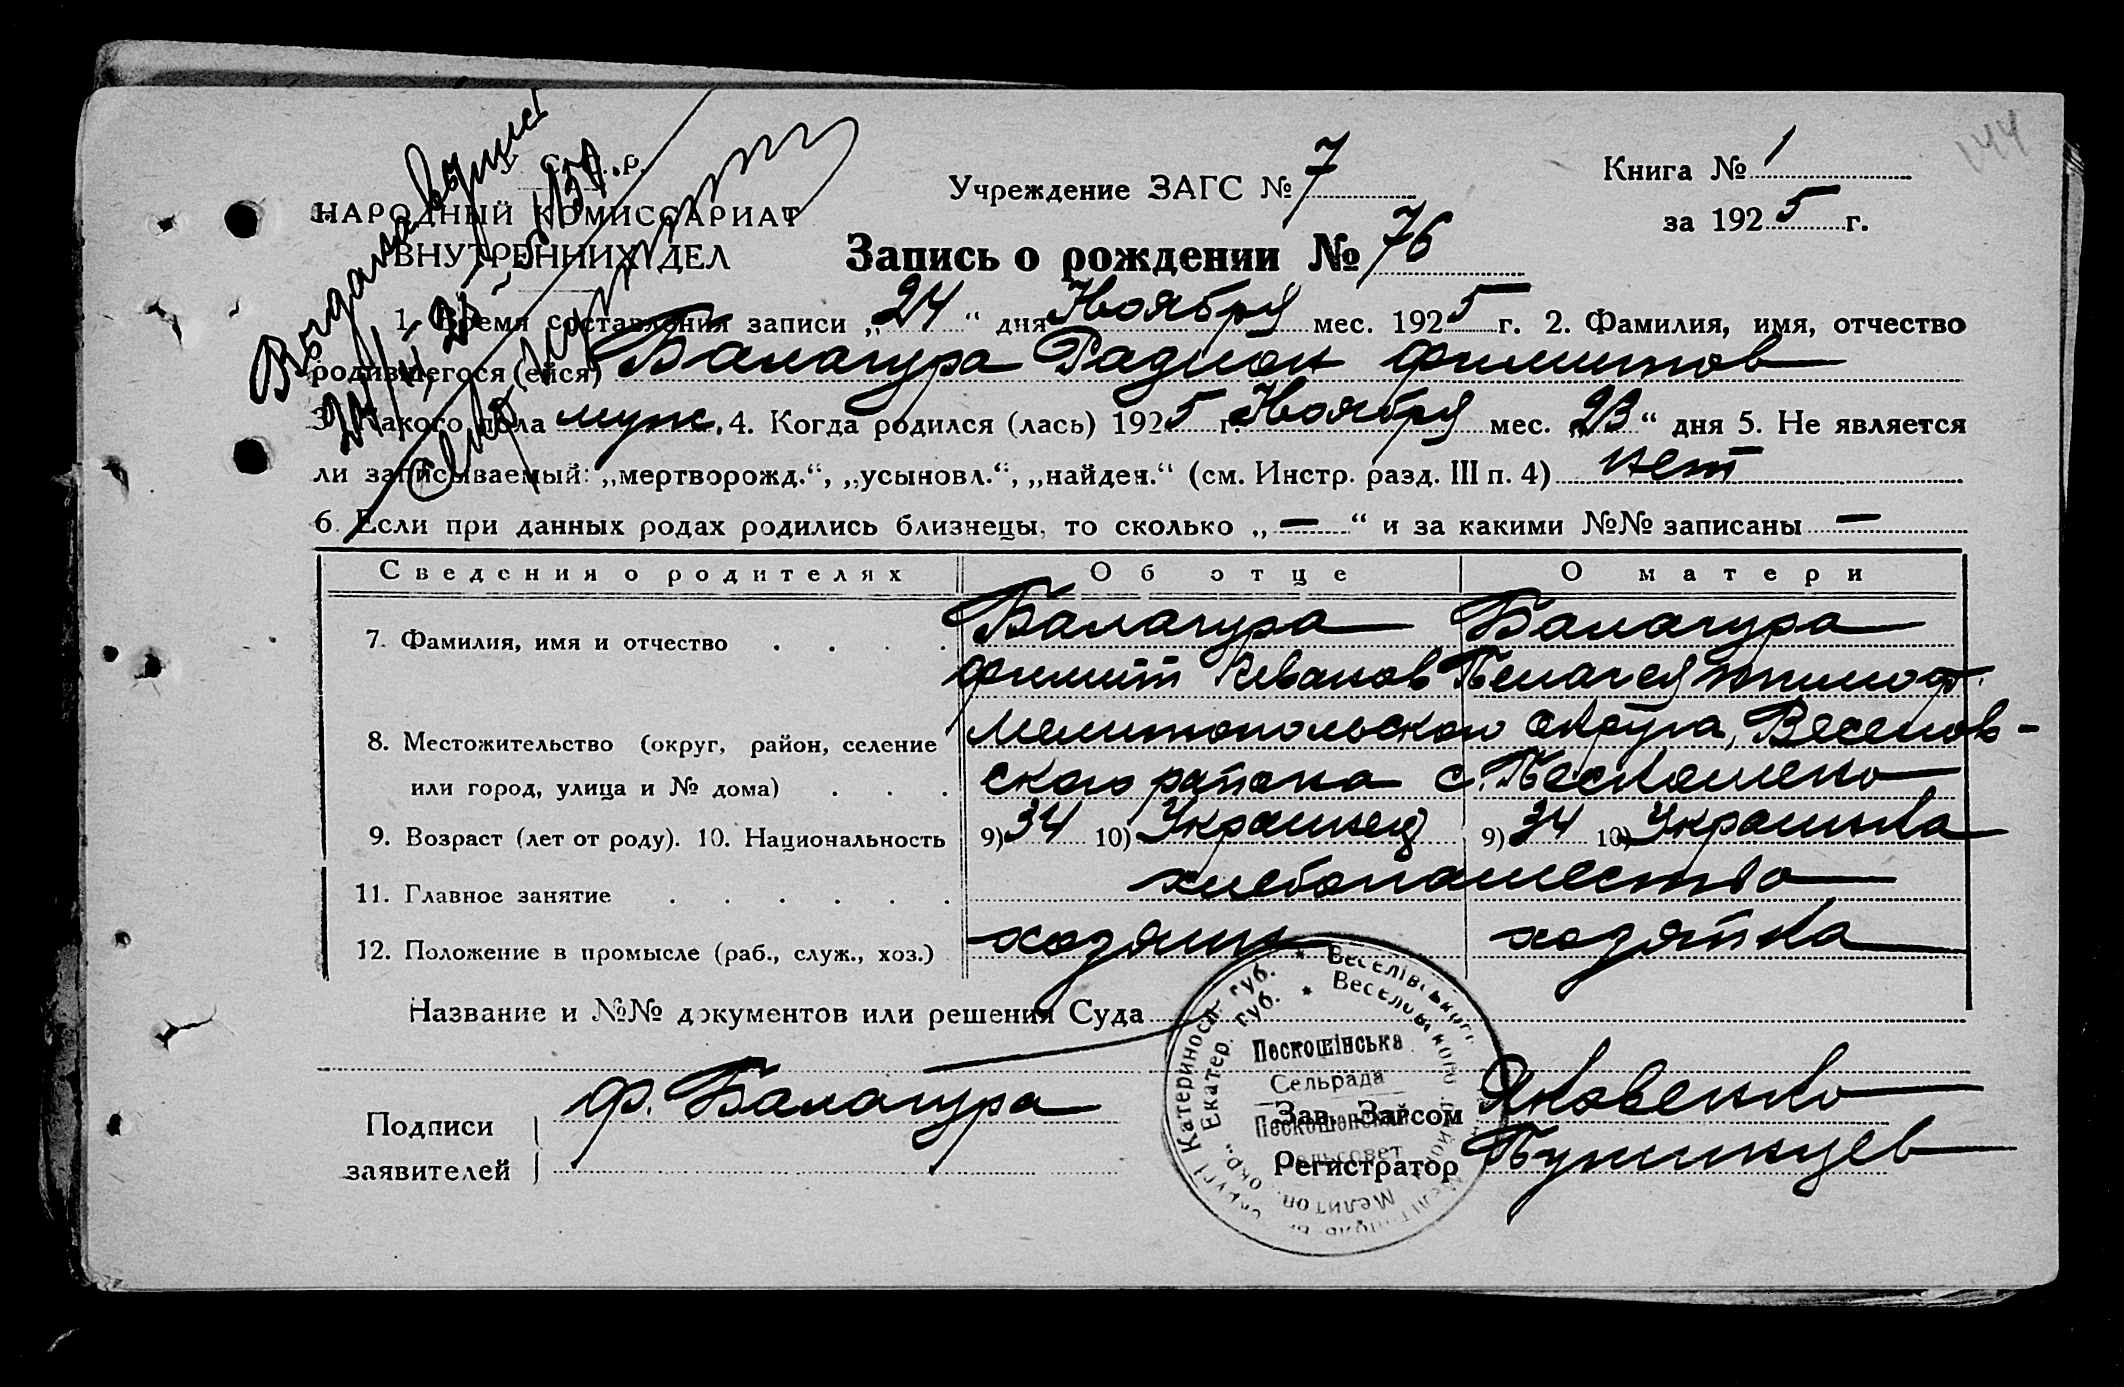 144
Учреждение ЗАГС № 7
Книга № 1
за 1925 г.
НАРОДНЫЙ КОМИССАРИАТ
ВНУТРЕННИХ ДЕЛ
Запись о рождении № 76
1. Время составления записи „24“ дня Ноября мес. 1925 г. 2. Фамилия, имя, отчество
родившегося (ейся) Балагура Радион Филипов
3. Какого пола муж. 4. Когда родился (лась) 1925 г. Ноября мес. „23“ дня 5. Не является
ли записываемый: „мертворожд.“, „усыновл.“, „найден.“ (см. Инстр. разд. III п. 4) нет
6. Если при данных родах родились близнецы, то сколько „—“ и за какими №№ записаны —
Сведения о родителях Об отце О матери
7. Фамилия, имя и отчество Балагура Балагура
Филип Иванов Пелагея Тимоф.
8. Местожительство (округ, район, селение Мелитопольского округа, Веселов-
или город, улица и № дома) ского района с.
9. Возраст (лет от роду). 10. Национальность 9) 34 10) Украинец 9) 34 10) Украинка
11. Главное занятие хлебопашество
12. Положение в промысле (раб., служ., хоз.) хозяин хозяйка
Название и №№ документов или решения Суда
Подписи
заявителей
Ф. Балагура
Зав. Загсом Яковенко
Регистратор
Катеринос. Губ. * Веселівського
Екатер. Губ. * Веселовского
Мелитоп. окр.
Пескошінська
Сельрада
Пескошенский
Сельсовет